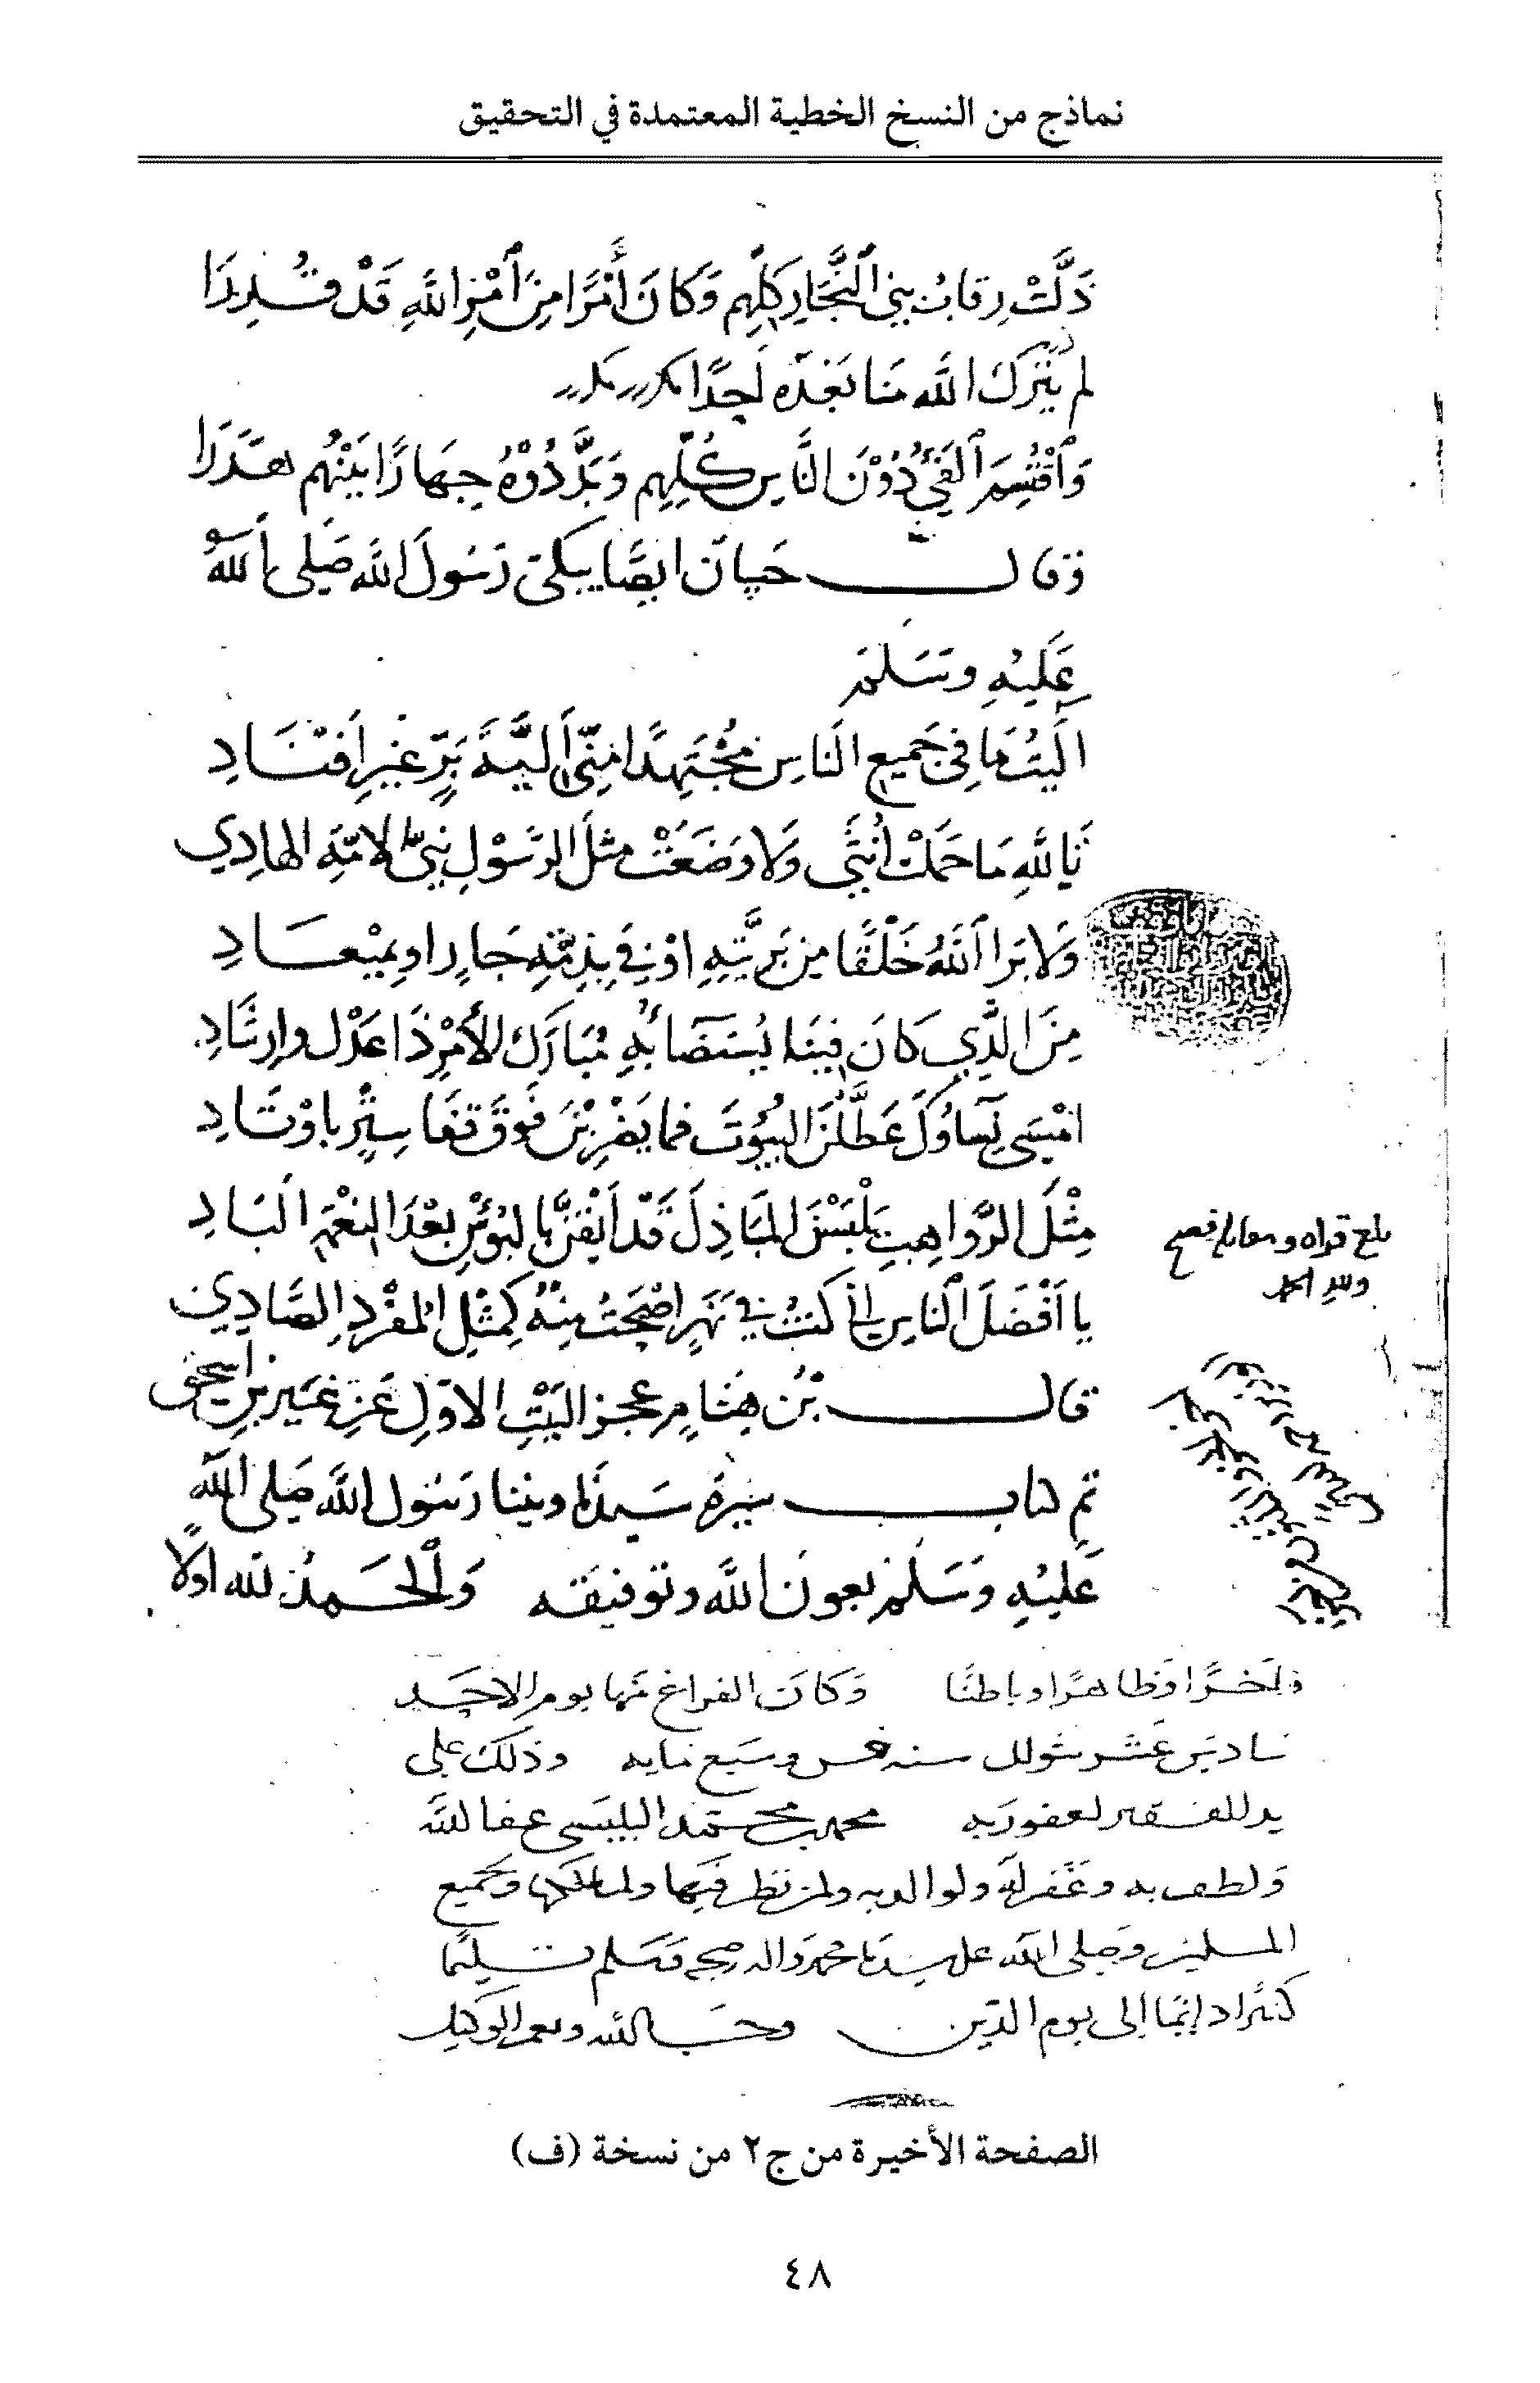 نماذج من النسخ الخطية المعتمدة في التحقيق
ذَلَّتْ رِقَابُ بني النَّجَّارِ كلِّهِم وَكَانَ أَمْرًا مِنَ آمْرِ اللَّهِ قَدْ قُدِرَا
لم يَتْرُكِ اللَّه منا بَعْدَه أَحدًا
وَاقْتُسِمَ الفَيْءُ دُوْنَ النَّاسِ كُلِّهِم وَبَدَّدُوْهُ جِهَارًا بَيْنَهُم هَدَرَا
وقال حَسان ايضًا يبكى رَسُولَ اللَّه صَلى اللَّهُ
عَلَيْهِ وَسَلم
آلَيْتُ مَا فِى جَميعِ النَاسِ مُجْتَهِدًا مِنّى أَلِيَّةَ بَرٍّ غَيْرِ اِفنَادِ
تَاللَّهِ مَا حَمَلتْ أُنْثَى وَلا وَضَعَتْ مثلَ الرَّسُوْلِ نبىّ الامّةِ الهادِي
وَلا بَرَا اللَّهُ خَلْقًا مِن بَرِيَّتِهِ اوْفى بِذِمّةِ جَارٍ او بمِيْعَادِ
مِنَ الَّذِي كَانَ فينَا يُسْتَضَاءُ بِهِ مُبَارَكَ الأَمْرِ ذَا عَدْلٍ وارشَادِ
امْسَى نِسَاؤكَ عَطَّلْنَ البيُوتَ فما يَضْرِبْنَ فَوقَ قَفَا سِتْرٍ باوْتَادِ
مِثْلَ الرَّوَاهِبِ يَلْبَسْنَ المَبَاذِلَ قَد أَيْقَنَّ بالبُؤْسِ بَعْدَ النِعْمَةِ البَادِ
بلغ قراه ومقابله فصح
ولله الحمد
يا اَفْضَلَ النَاسِ إنى كنتُ في نَهَرٍ اصْبَحتُ مِنْهُ كَمِثْلِ المُفْرَدِ الصَّادِي
قال بْن هِشَامٍ عجز البَيْتِ الاوّلِ عَن غَيْرِ بنِ اسحق
تم كتاب سِيرة سَيدنا ونبينا رَسُول اللَّه صَلى اللَّه
عَليْهِ وَسَلم بعون اللَّه وتوفيقه وَالحَمدُ للَّه اولًا
وآخرًا وظاهرًا وباطنًا وَكَانَ الفراغ منها يوم الاحد
سَادسَ عَشر شوال سنه خمس وسَبع مايه وذلك على
يد الفقير لعفو ربه محمد بن محمد البلبيسى عفا اللَّه
وَلطف به وغَفر له ولوالديه ولمن نظر فيها ولمالكها وجميع
المسلمين وَصلى اللَّه على سيدنا محمد واله وصحبه وَسَلم تسليمًا
كثيرًا دائمًا إلى يوم الدّين وحسبنا اللَّه ونعم الوكيل
الصفحة الأخيرة من ج٢ من نسخة (ف)
٤٨